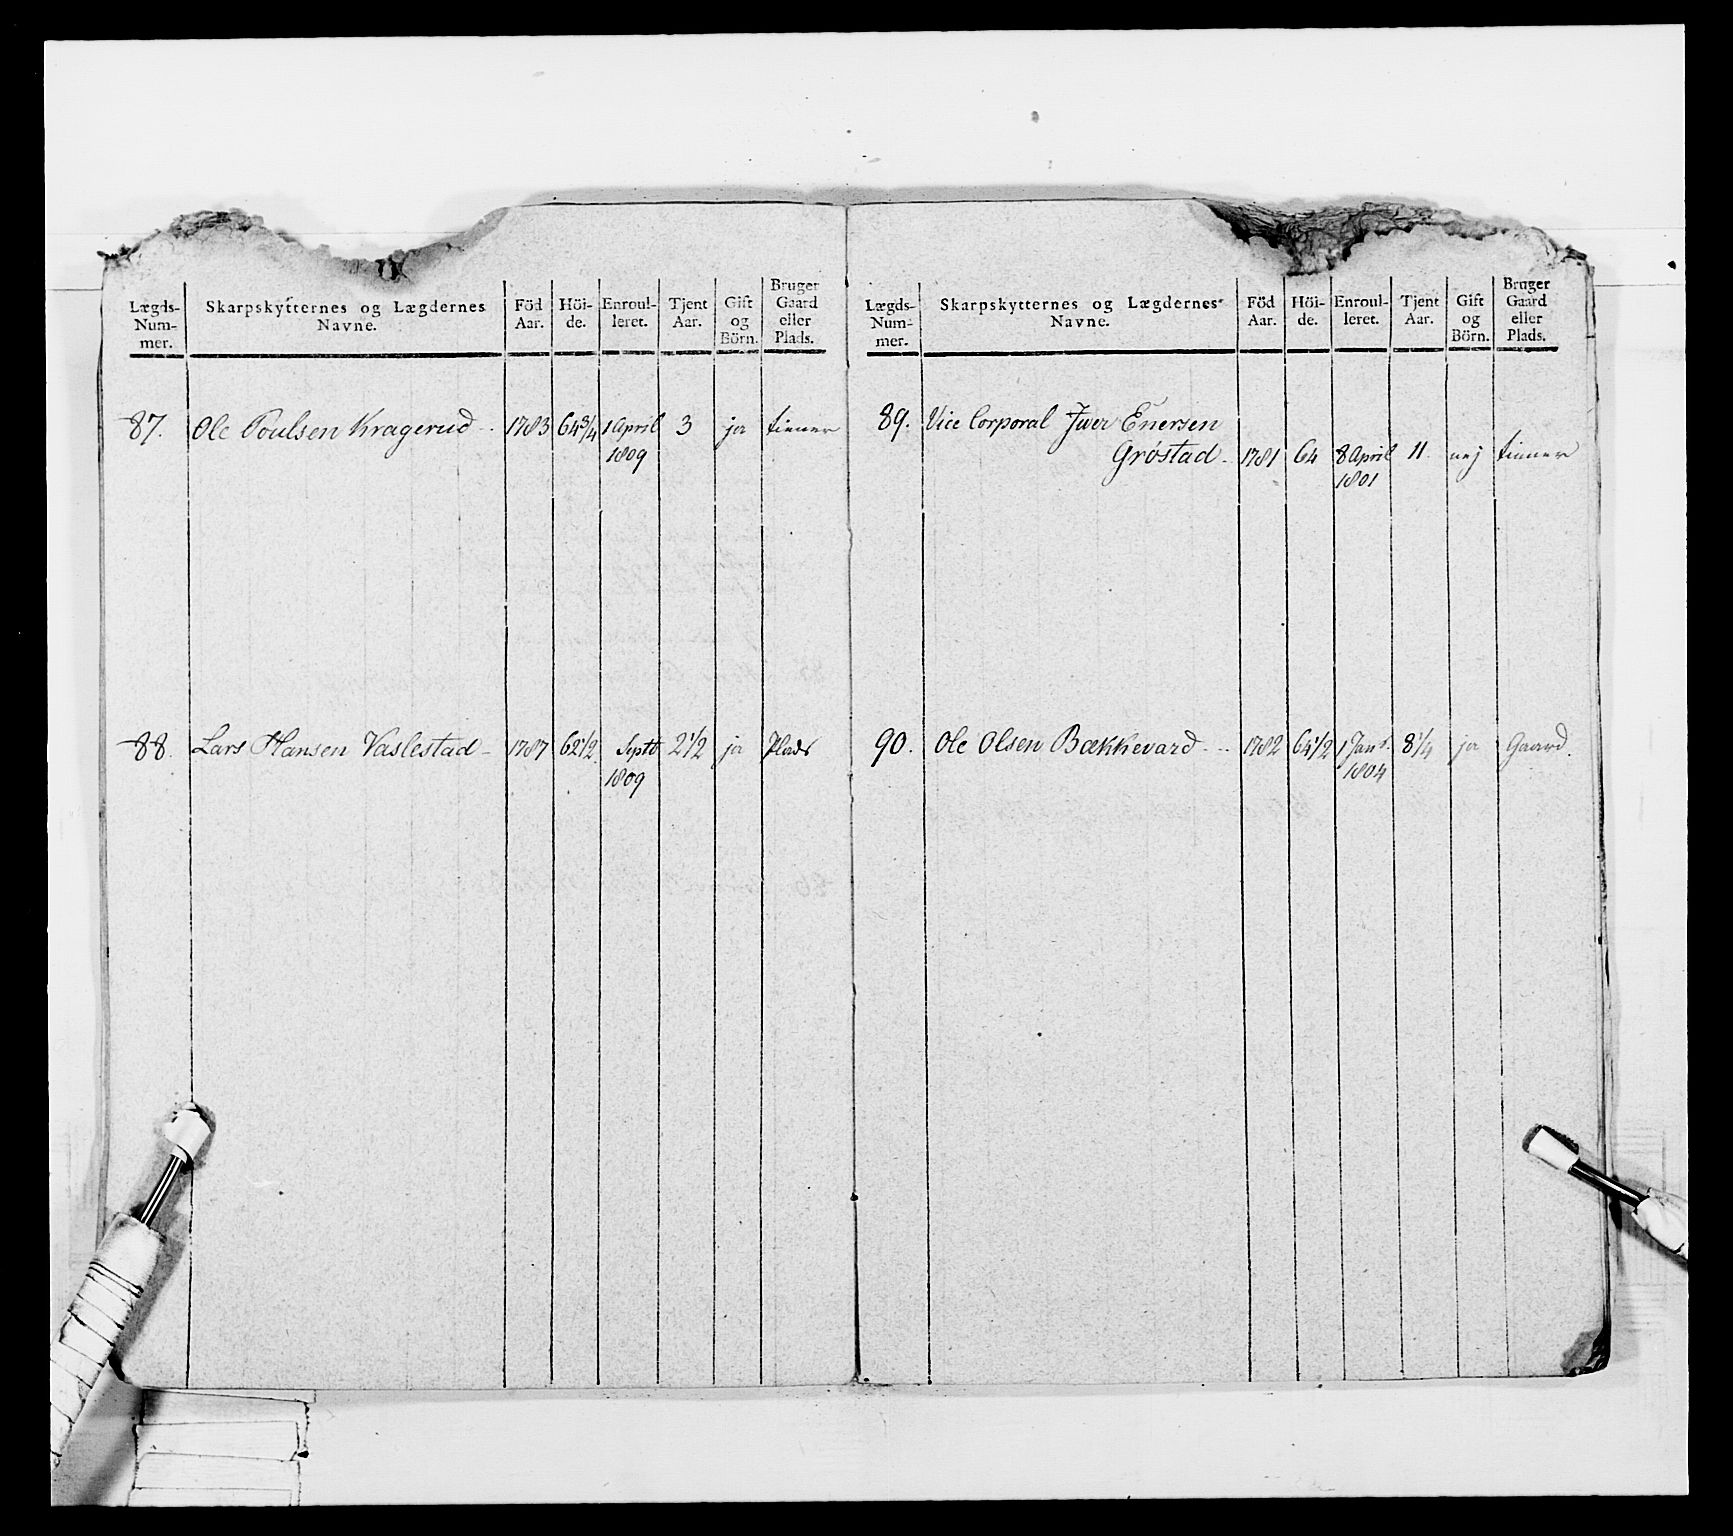 Lægds-
Num-
mer.
Skarpskytternes og Lægdernes
Navne.
Föd
Aar.
Höi-
de.
Enroul-
leret.
Tjent
Aar.
Gift
og
Börn.
Bruger
Gaard
eller
Plads.
87. Ole Poulsen Kragerud - 1783 64 3/4 1 April 3 ja tienner
1809
88. Lars Hansen Vaslestad - 1787 62 1/2 Septb 2 1/2 ja Plads
1809
Lægds-
Num-
mer.
Skarpskytternes og Lægdernes
Navne.
Föd
Aar.
Höi-
de.
Enroul-
leret.
Tjent
Aar.
Gift
og
Börn.
Bruger
Gaard
eller
Plads.
89. Vice Corporal Iver Enersen
Gröstad - 1781 64 8 April 11 nej tienner
1801
90. Ole Olsen Bækkevard - 1782 64 1/2 1 Janr. 8 1/4 ja Gaard.
1804